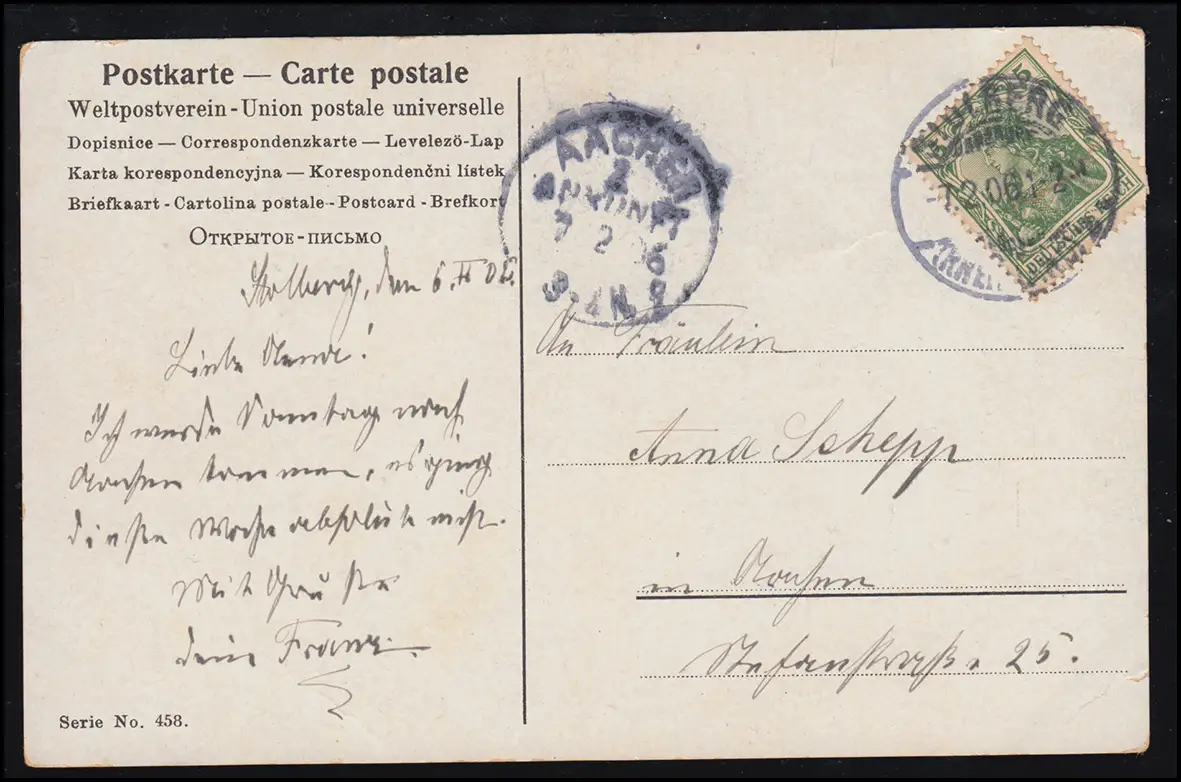 Postkarte — Carte postale
Weltpostverein - Union postale universelle
Dopisnice — Correspondenzkarte — Levelezö-Lap
Karta korespondencyjna — Korespondenčni lístek
Briefkaart - Cartolina postale - Postcard - Brefkort
Открытое-письмо
Stolberg, den 6. II 06.
Liebe Anna!
Ich werde Sonntag nach
Aachen kommen, es ging
diese Woche absolut nicht.
Mit Grüßen
dein Franz.
Serie No. 458.
AACHEN
2
ANKUNFT
7 2 06
8-9N.
5
2.06
An Fräulein
Anna Schepp
in Aachen
Stefanstraße 25.